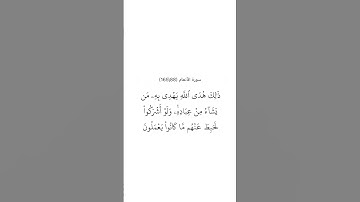 سورة الأنعام (88)(165)
ذَٰلِكَ هُدَى ٱللَّهِ يَهْدِى بِهِۦ مَن
يَشَآءُ مِنْ عِبَادِهِۦ ۚ وَلَوْ أَشْرَكُوا۟
لَحَبِطَ عَنْهُم مَّا كَانُوا۟ يَعْمَلُونَ